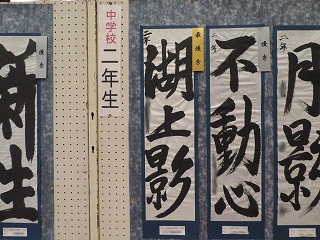 優秀
新生
中学校 二年生
最優秀
二年 湖上影
優秀
二年 不動心
二年 月影